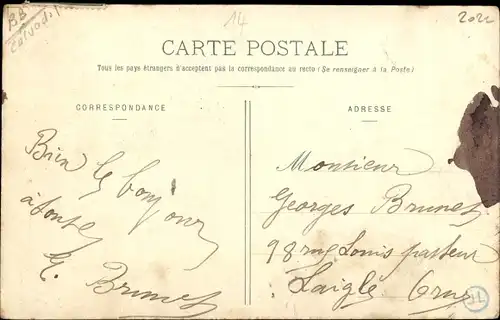 14
2022
CARTE POSTALE
Tous les pays étrangers n'acceptent pas la correspondance au recto (Se renseigner à la Poste)
CORRESPONDANCE
Bien le bonjour
à tous
G. Brunet
ADRESSE
Monsieur
Georges Brunet
98 rue Louis pasteur
Laigle Orne
JL